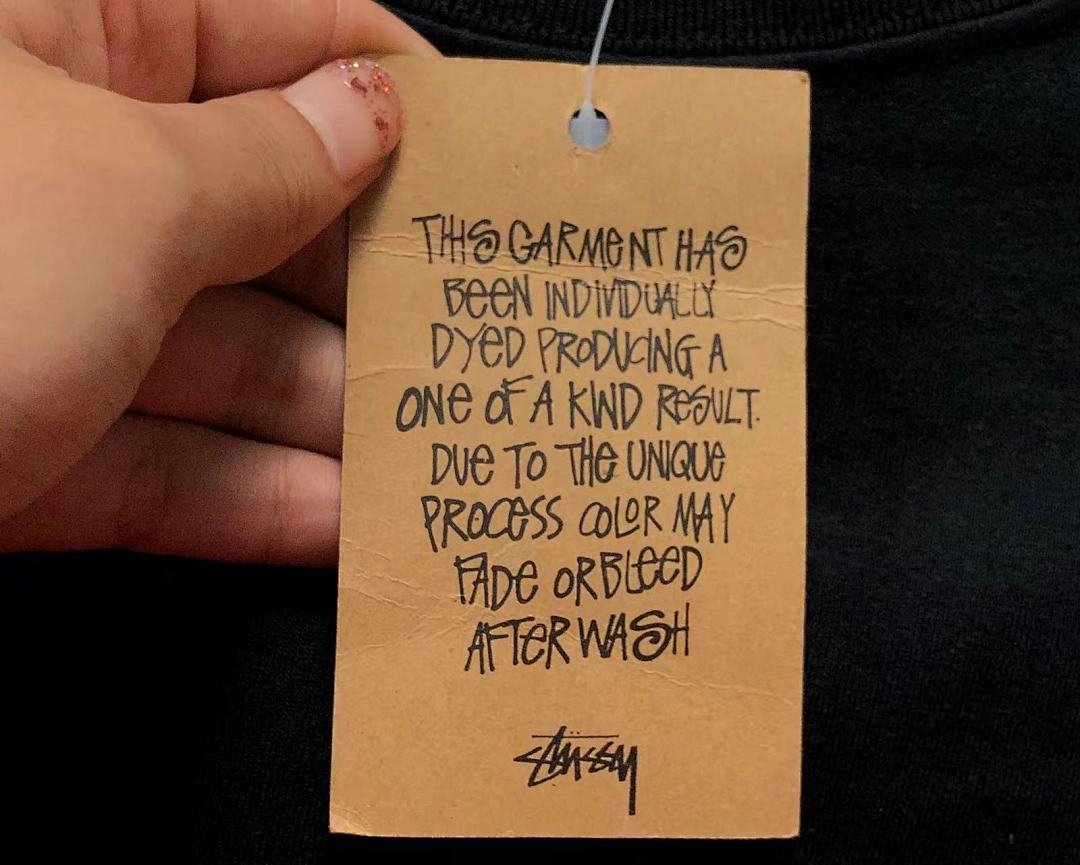 THIS GARMENT HAS
BEEN INDIVIDUALLY
DYED PRODUCING A
ONE OF A KIND RESULT.
DUE TO THE UNIQUE
PROCESS COLOR MAY
FADE OR BLEED
AFTER WASH
Stüssy